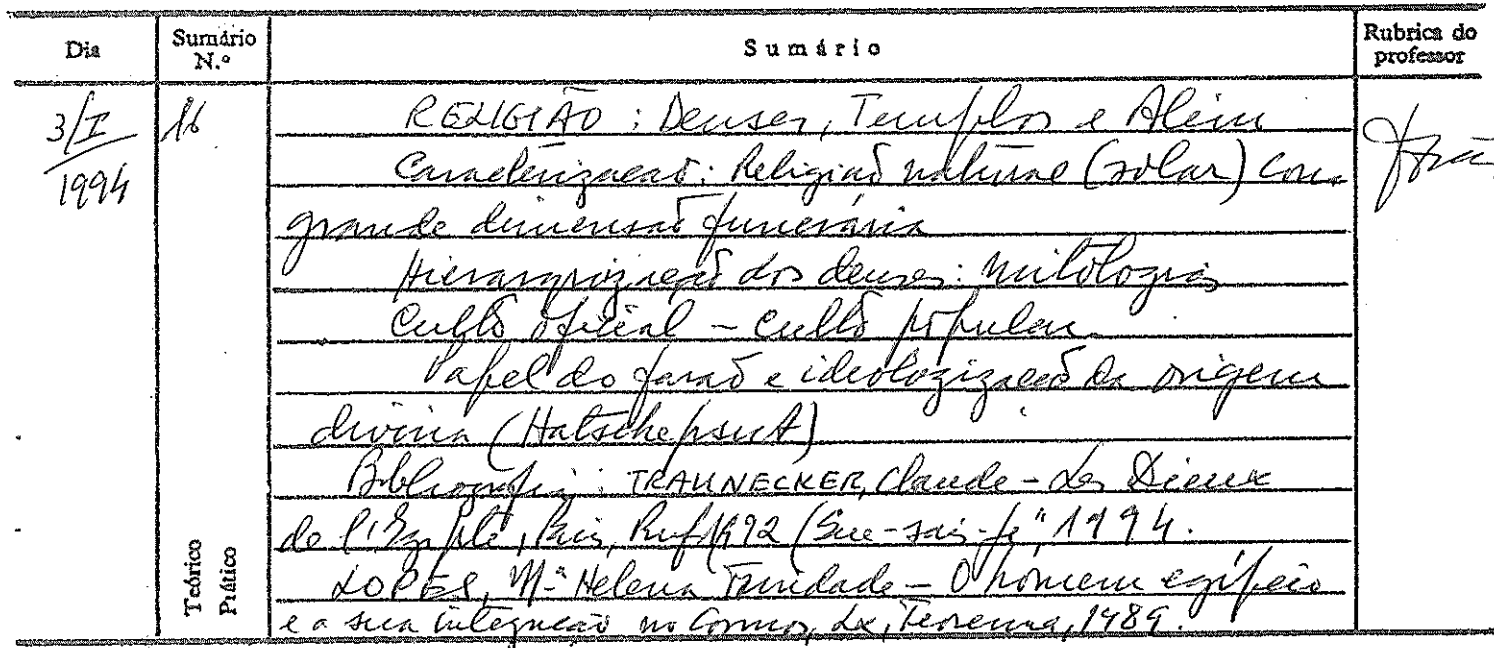 Dia Sumário N.º Sumário Rubrica do professor
3/I/1994 16 RELIGIÃO: Deuses, Templos e Além
Caracterização: Religião natural (solar) com
grande dimensão funerária
Hierarquização dos deuses: mitologias
Culto oficial - culto popular
Papel do faraó e ideologização da origem
divina (Hatschepsut)
Bibliografia: TRAUNECKER, Claude - Les Dieux
de l'Egypte, Paris, Puf, 1992 (Que-sais-je" 1194.
LOPES, Mª Helena Trindade - O homem egípcio
e a sua integração no Cosmos, Lx, Teorema, 1989.
Teórico
Prático